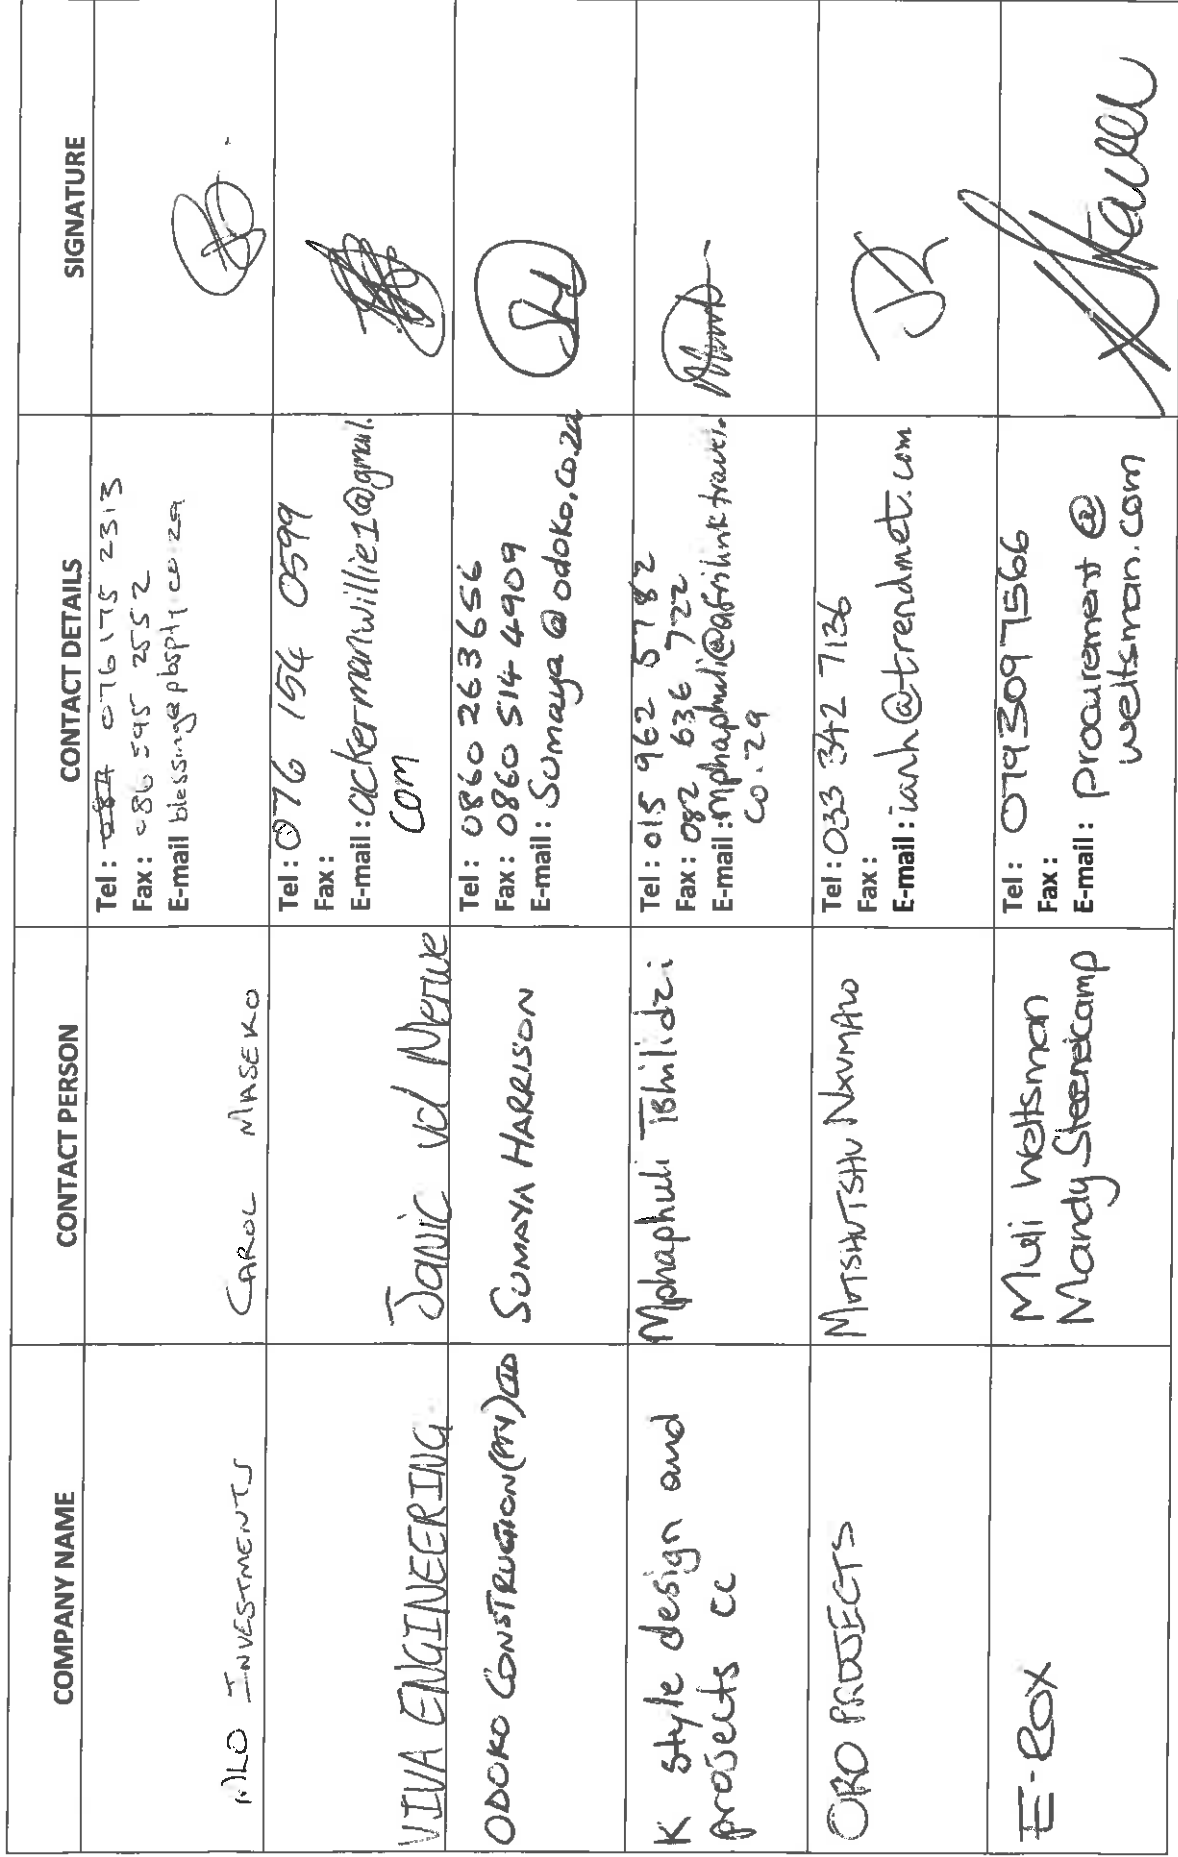 COMPANY NAME CONTACT PERSON CONTACT DETAILS SIGNATURE
MLO INVESTMENTS
CAROL MASEKO
Tel : 076 175 2313
Fax : 086 595 2552
E-mail blessing@pbspty.co.za
VIVA ENGINEERING
Janic vd Merwe
Tel : 076 154 0599
Fax :
E-mail : ackermanwillie1@gmail.
com
ODOKO CONSTRUCTION (PTY) LTD
SUMAYA HARRISON
Tel : 0860 263 656
Fax : 0860 514 4909
E-mail : Sumaya @ odoko.co.za
K style design and
projects cc
Mphaphuli Tshilidzi
Tel : 015 962 5782
Fax : 082 636 722
E-mail : mphaphuli@afrilinktravel.
co.za
ORO PROJECTS
MUTSHUTSHU NXUMALO
Tel : 033 342 7136
Fax :
E-mail : ianh@trendmet.com
E-Rox
Muli Weltsman
Mandy Steenekamp
Tel : 0793097566
Fax :
E-mail : procurement @
weltsman.com